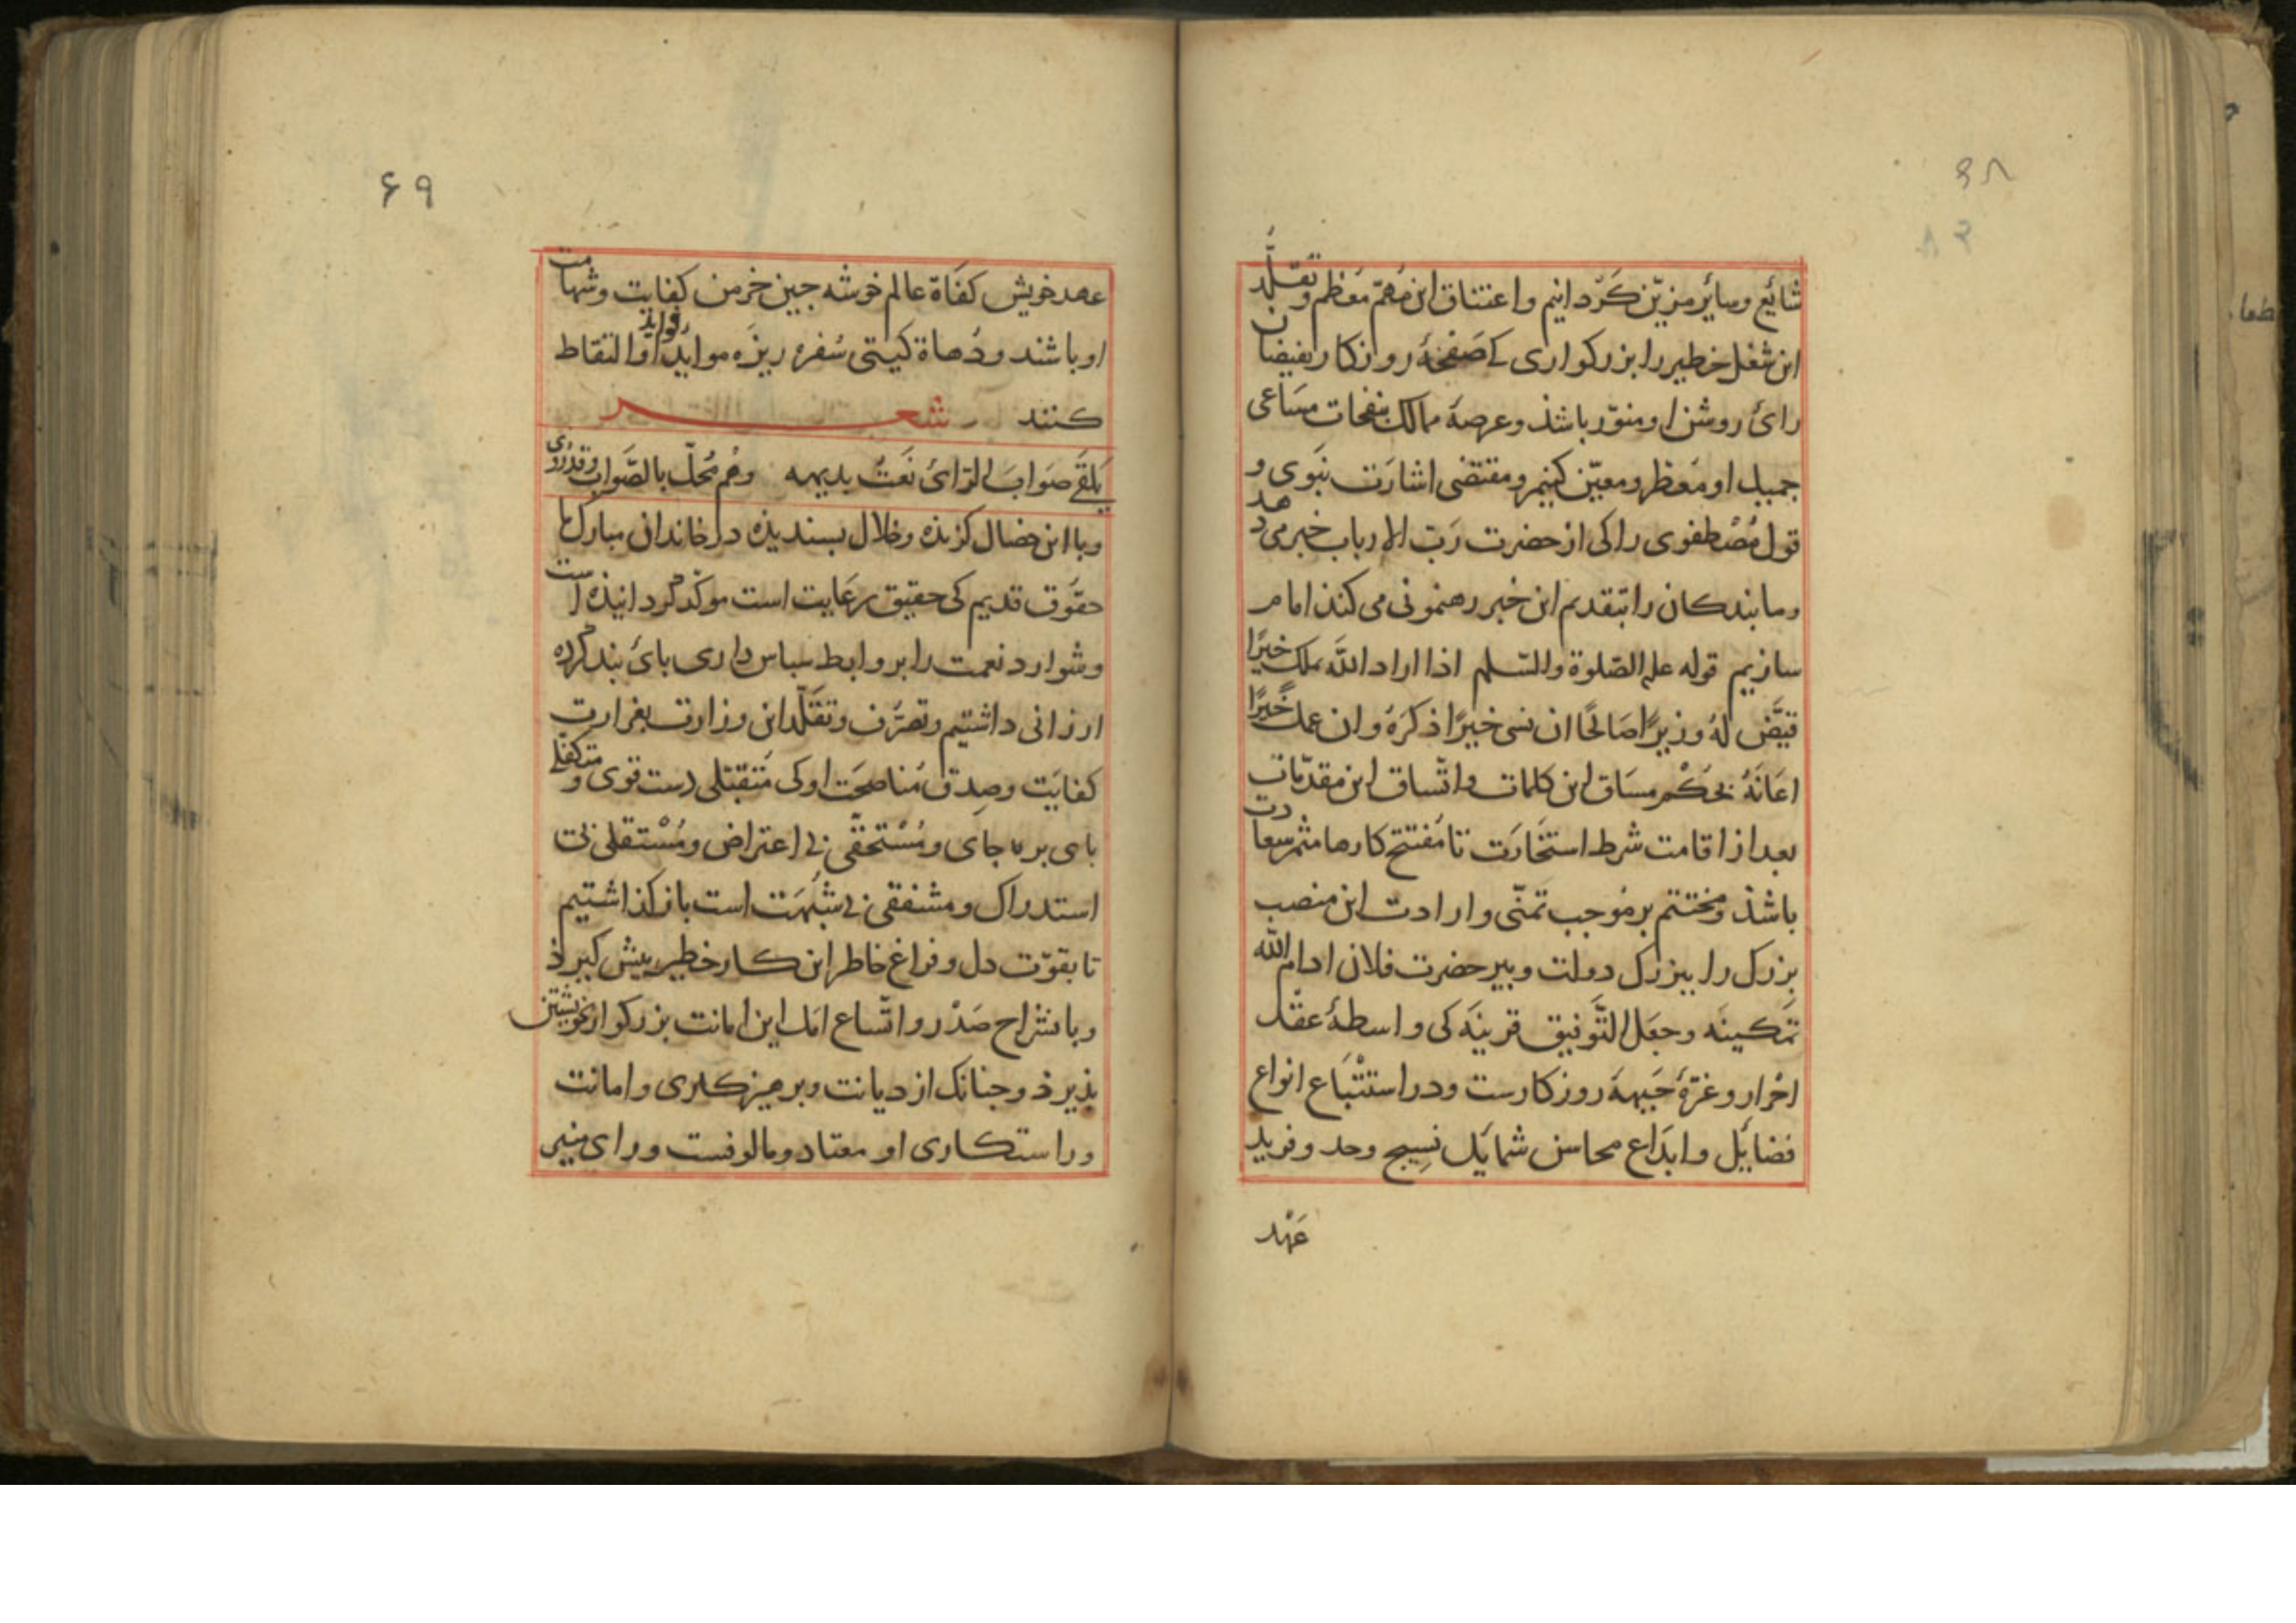 ۶۸
شائع وسائر مزیّن کرّدانیم واعتناق این مهمّ معظم وتقلّد
این شغل خطیر را بزرکواری کے صَفحۀ روزکار بفیضان
رائ روشن او منوّر باشذ وعرصۀ ممالک بنفحات مسَاعی
جمیل او معَطر ومعیّن کنیم ومقتضی اشارَت نبَوی و
قول مُصْطفوی را کی از حضرت رَبّ الارباب خبر می دهد
وما بندکان را بتقدیم این خبر رهنمونی می کنذ امام
سازیم قوله علیه الصّلوة والسّلم اذا اراد اللّه بملک خیرًا
قیّض لهُ وزیرًا صَالحًا ان نسی خیرًا ذکرَهُ وان عمل خیرًا
اعَانَهُ بحُکْم مسَاق این کلمات واتّساق این مقدّمات
بعد از اقامت شرط استخَارَت تا مُفتتح کارها مثمر سعادت
باشذ ومختتم بر مُوجب تمنّی وارادت این منصب
بزرک را ببزرک دولت وبیر حضرت فلان ادام الله
تمَکینَه وجعَل التَّوفیق قرینَه کی واسطۀ عقْد
احْرار وغرّۀ جَبهۀ روزکارست ودر استتْبَاع انواع
فضائِل وابدَاع محاسن شمائِل نسِیج وحد وفرید
عَهْد
۶۹
عهد خویش کفَاة عالم خوشه جین خرمن کفایت وشهامت
او باشند ودُهاة کیتی سُفره ریزَه موایدِ فوایدِ او التقاط
کنند شعر
یَلقَے صَوابَ الرّائ نَعتُ بدیهه وهُم مُحلّ بالصّواب وقدرُوی
وبا این خصال کزیذه وخلال بسندیذه در خاندان مبارک ما
حقوق قدیم کی حقیق رعَایت است موکّد کردانیذه است
وشوارد نعمت را بروابط سباس داری بائ بند کرده
ارزانی داشتیم وتصرّف وتقلّد این وزارت بغزارت
کفایَت وصِدق مُناصحَت او کی مُتقبّلی دست قوی ومتکفّلے
بای بر جای ومُسْتحقّی بے اعتراض ومُسْتقلی بے
استدراک ومشفقی بے شبْهَت است باز کذاشتیم
تا بقوّت دل وفراغ خاطر این کار خطیر بیش کیرذ
وبانشراح صَدْر واتّساع امَل این امانت بزرکوار بخویشتن
بذیرذ وجنانک از دیانت وبرهیزکاری وامانت
وراستکاری او معتاد ومالوفست ورای منیر